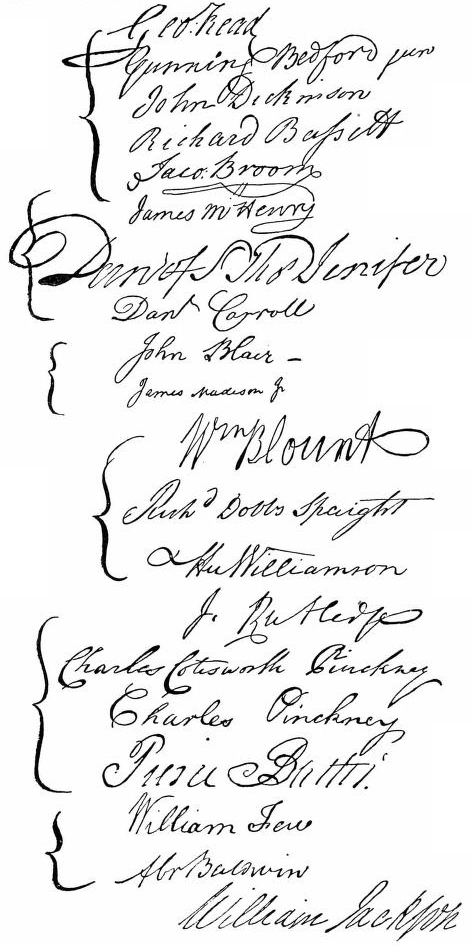 Geo: Read
Gunning Bedford jun
John Dickinson
Richard Bassett
Jaco: Broom
James McHenry
Dan of St Thos Jenifer
Danl Carroll
John Blair –
James Madison Jr
Wm Blount
Richd Dobbs Spaight
Hu Williamson
J. Rutledge
Charles Cotesworth Pinckney
Charles Pinckney
Pierce Butler.
William Few
Abr Baldwin
William Jackson